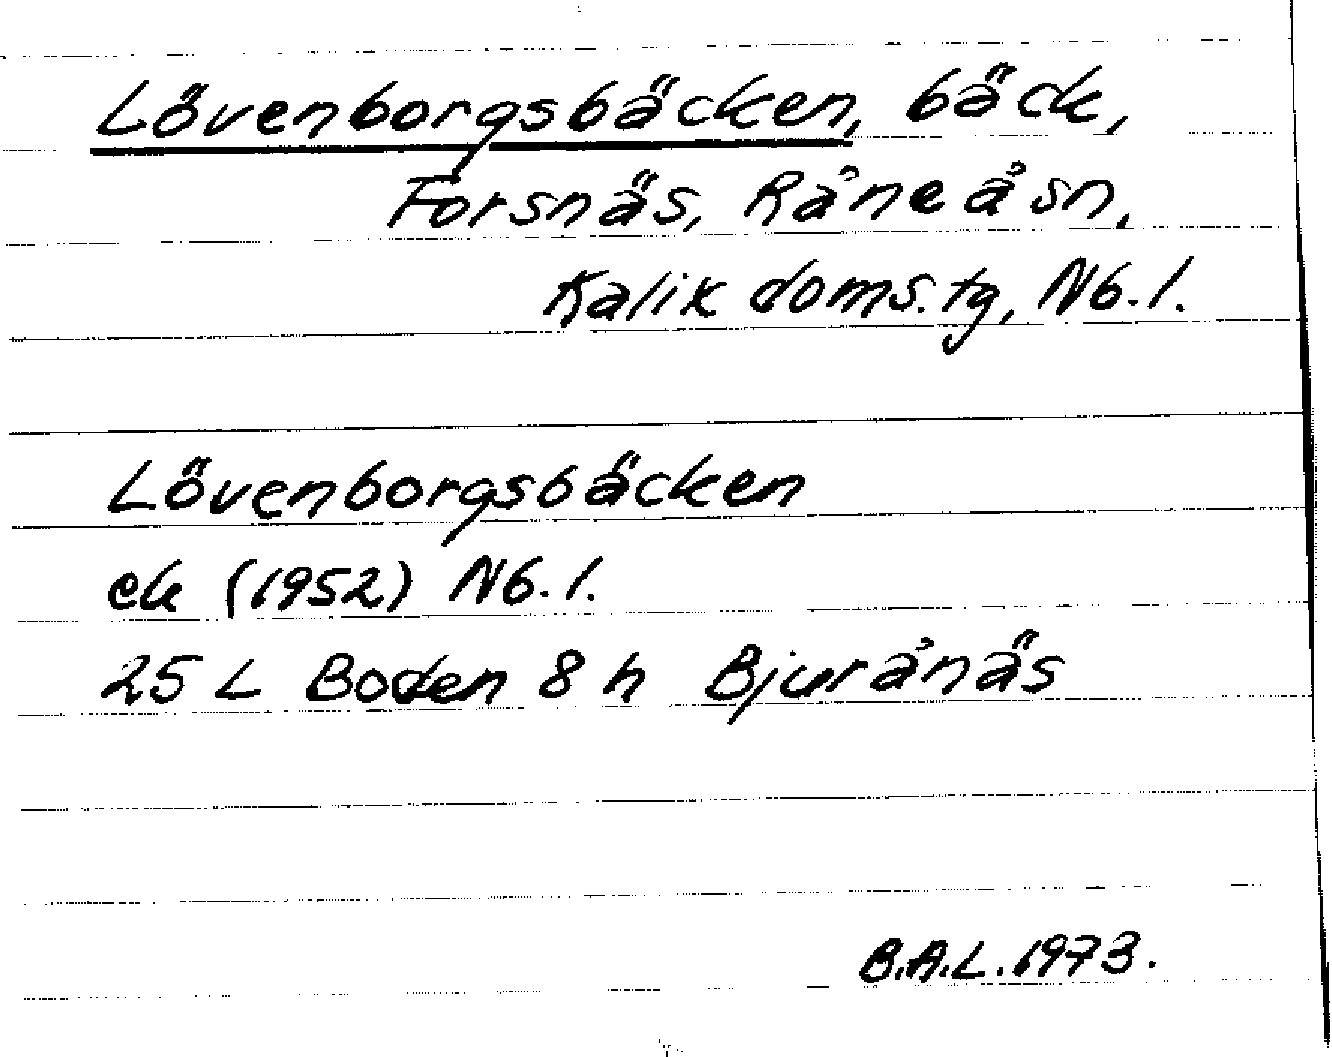 Lövenborgsbäcken, bäck,
Forsnäs, Råneå sn,
Kalix doms.tg, Nb.l.
Lövenborgsbäcken
ek (1952) Nb.l.
25 L Boden 8 h Bjurånäs
B.A.L. 1973.